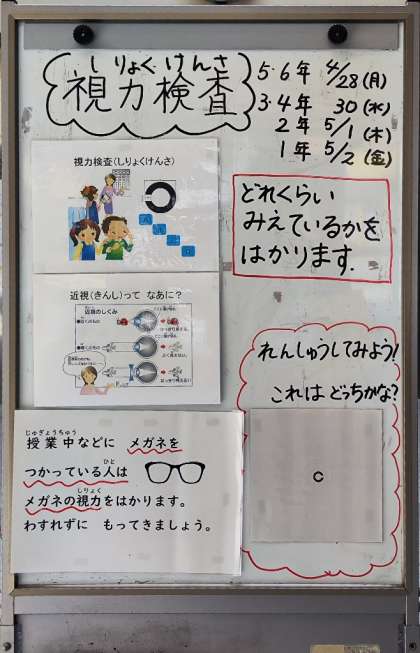 しりょくけんさ
視力検査
5・6年 4/28(月)
3・4年 30(水)
2年 5/1(木)
1年 5/2(金)
視力検査(しりょくけんさ)
どれくらい
みえているかを
はかります.
近視(きんし)って なあに?
近視のしくみ
れんしゅうしてみよう!
これは どっちかな?
じゅぎょうちゅう
授業中などに メガネを
ひと
つかっている人は
しりょく
メガネの視力をはかります。
わすれずに もってきましょう。